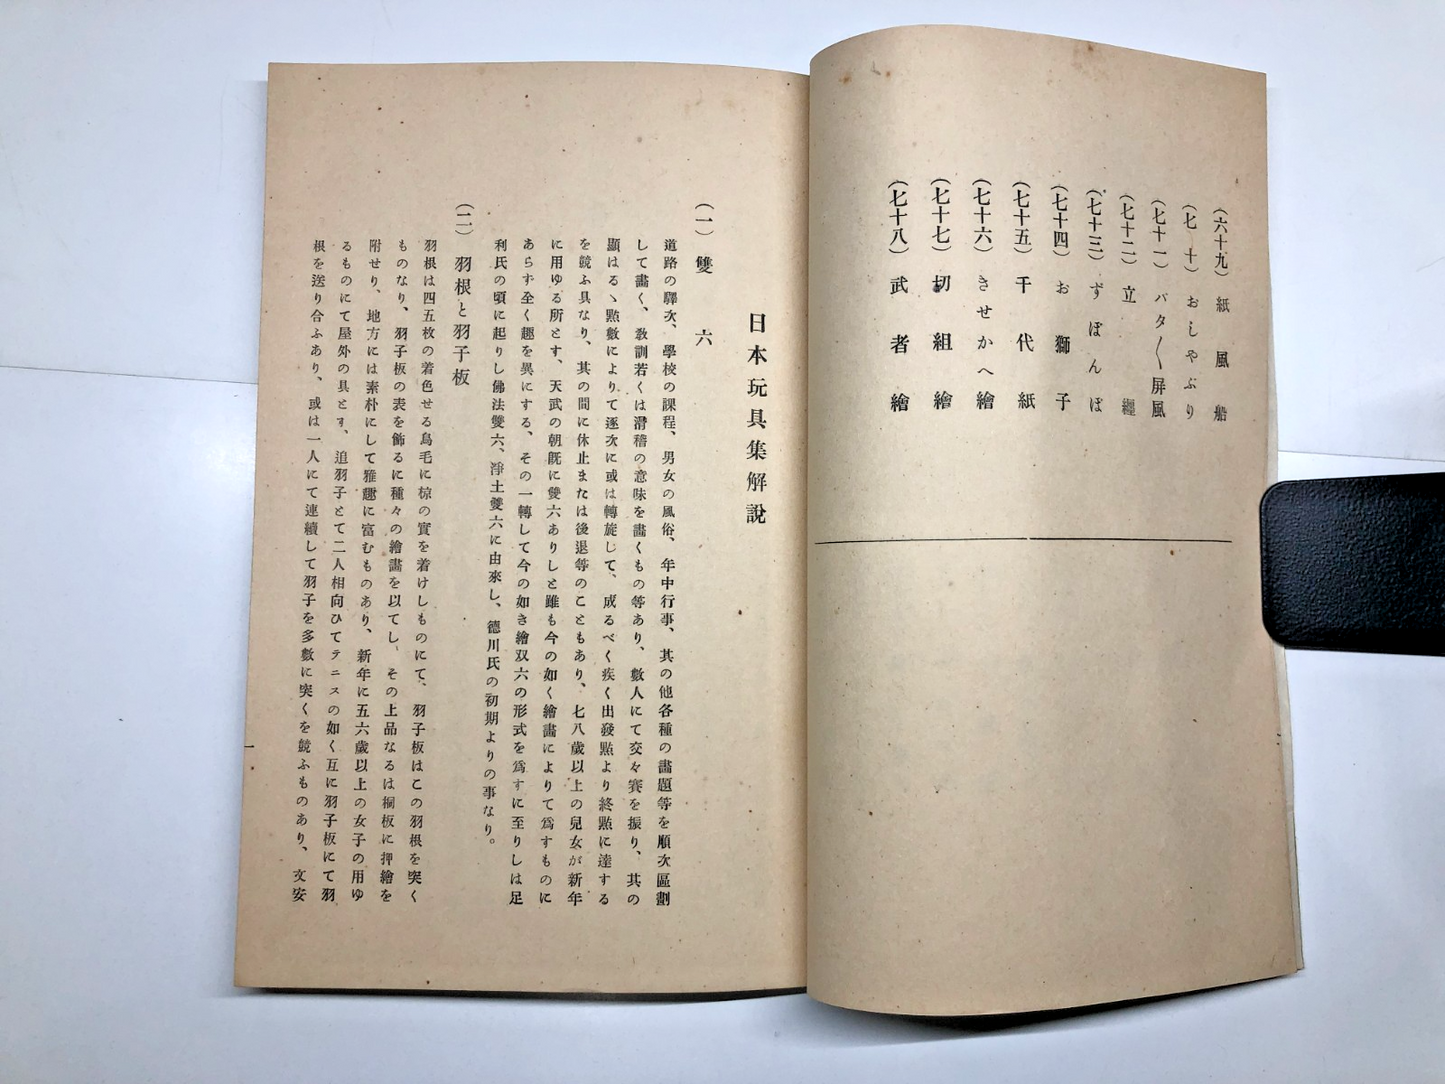 (六十九) 紙風船
(七十) おしやぶり
(七十一) バタ〱屏風
(七十二) 立纒
(七十三) ずぼんぼ
(七十四) お獅子
(七十五) 千代紙
(七十六) きせかへ繪
(七十七) 切組繪
(七十八) 武者繪
日本玩具集解說
(一) 雙六
道路の驛次、學校の課程、男女の風俗、年中行事、其の他各種の畵題等を順次區劃
して畵く、敎訓若くは滑稽の意味を畵くもの等あり、數人にて交々賽を振り、其の
顯はるゝ點數によりて逐次に或は轉旋して、成るべく疾く出發點より終點に達する
を競ふ具なり、其の間に休止または後退等のこともあり、七八歲以上の兒女が新年
に用ゆる所とす、天武の朝旣に雙六ありしと雖も今の如く繪畵によりて爲すものに
あらず全く趣を異にする、その一轉して今の如き繪双六の形式を爲すに至りしは足
利氏の頃に起りし佛法雙六、淨土雙六に由來し、德川氏の初期よりの事なり。
(二) 羽根と羽子板
羽根は四五枚の着色せる鳥毛に椋の實を着けしものにて、羽子板はこの羽根を突く
ものなり、羽子板の表を飾るに種々の繪畵を以てし、その上品なるは桐板に押繪を
附せり、地方には素朴にして雅趣に富むものあり、新年に五六歲以上の女子の用ゆ
るものにて屋外の具とす、追羽子とて二人相向ひてテニスの如く互に羽子板にて羽
根を送り合ふあり、或は一人にて連續して羽子を多數に突くを競ふものあり、文安